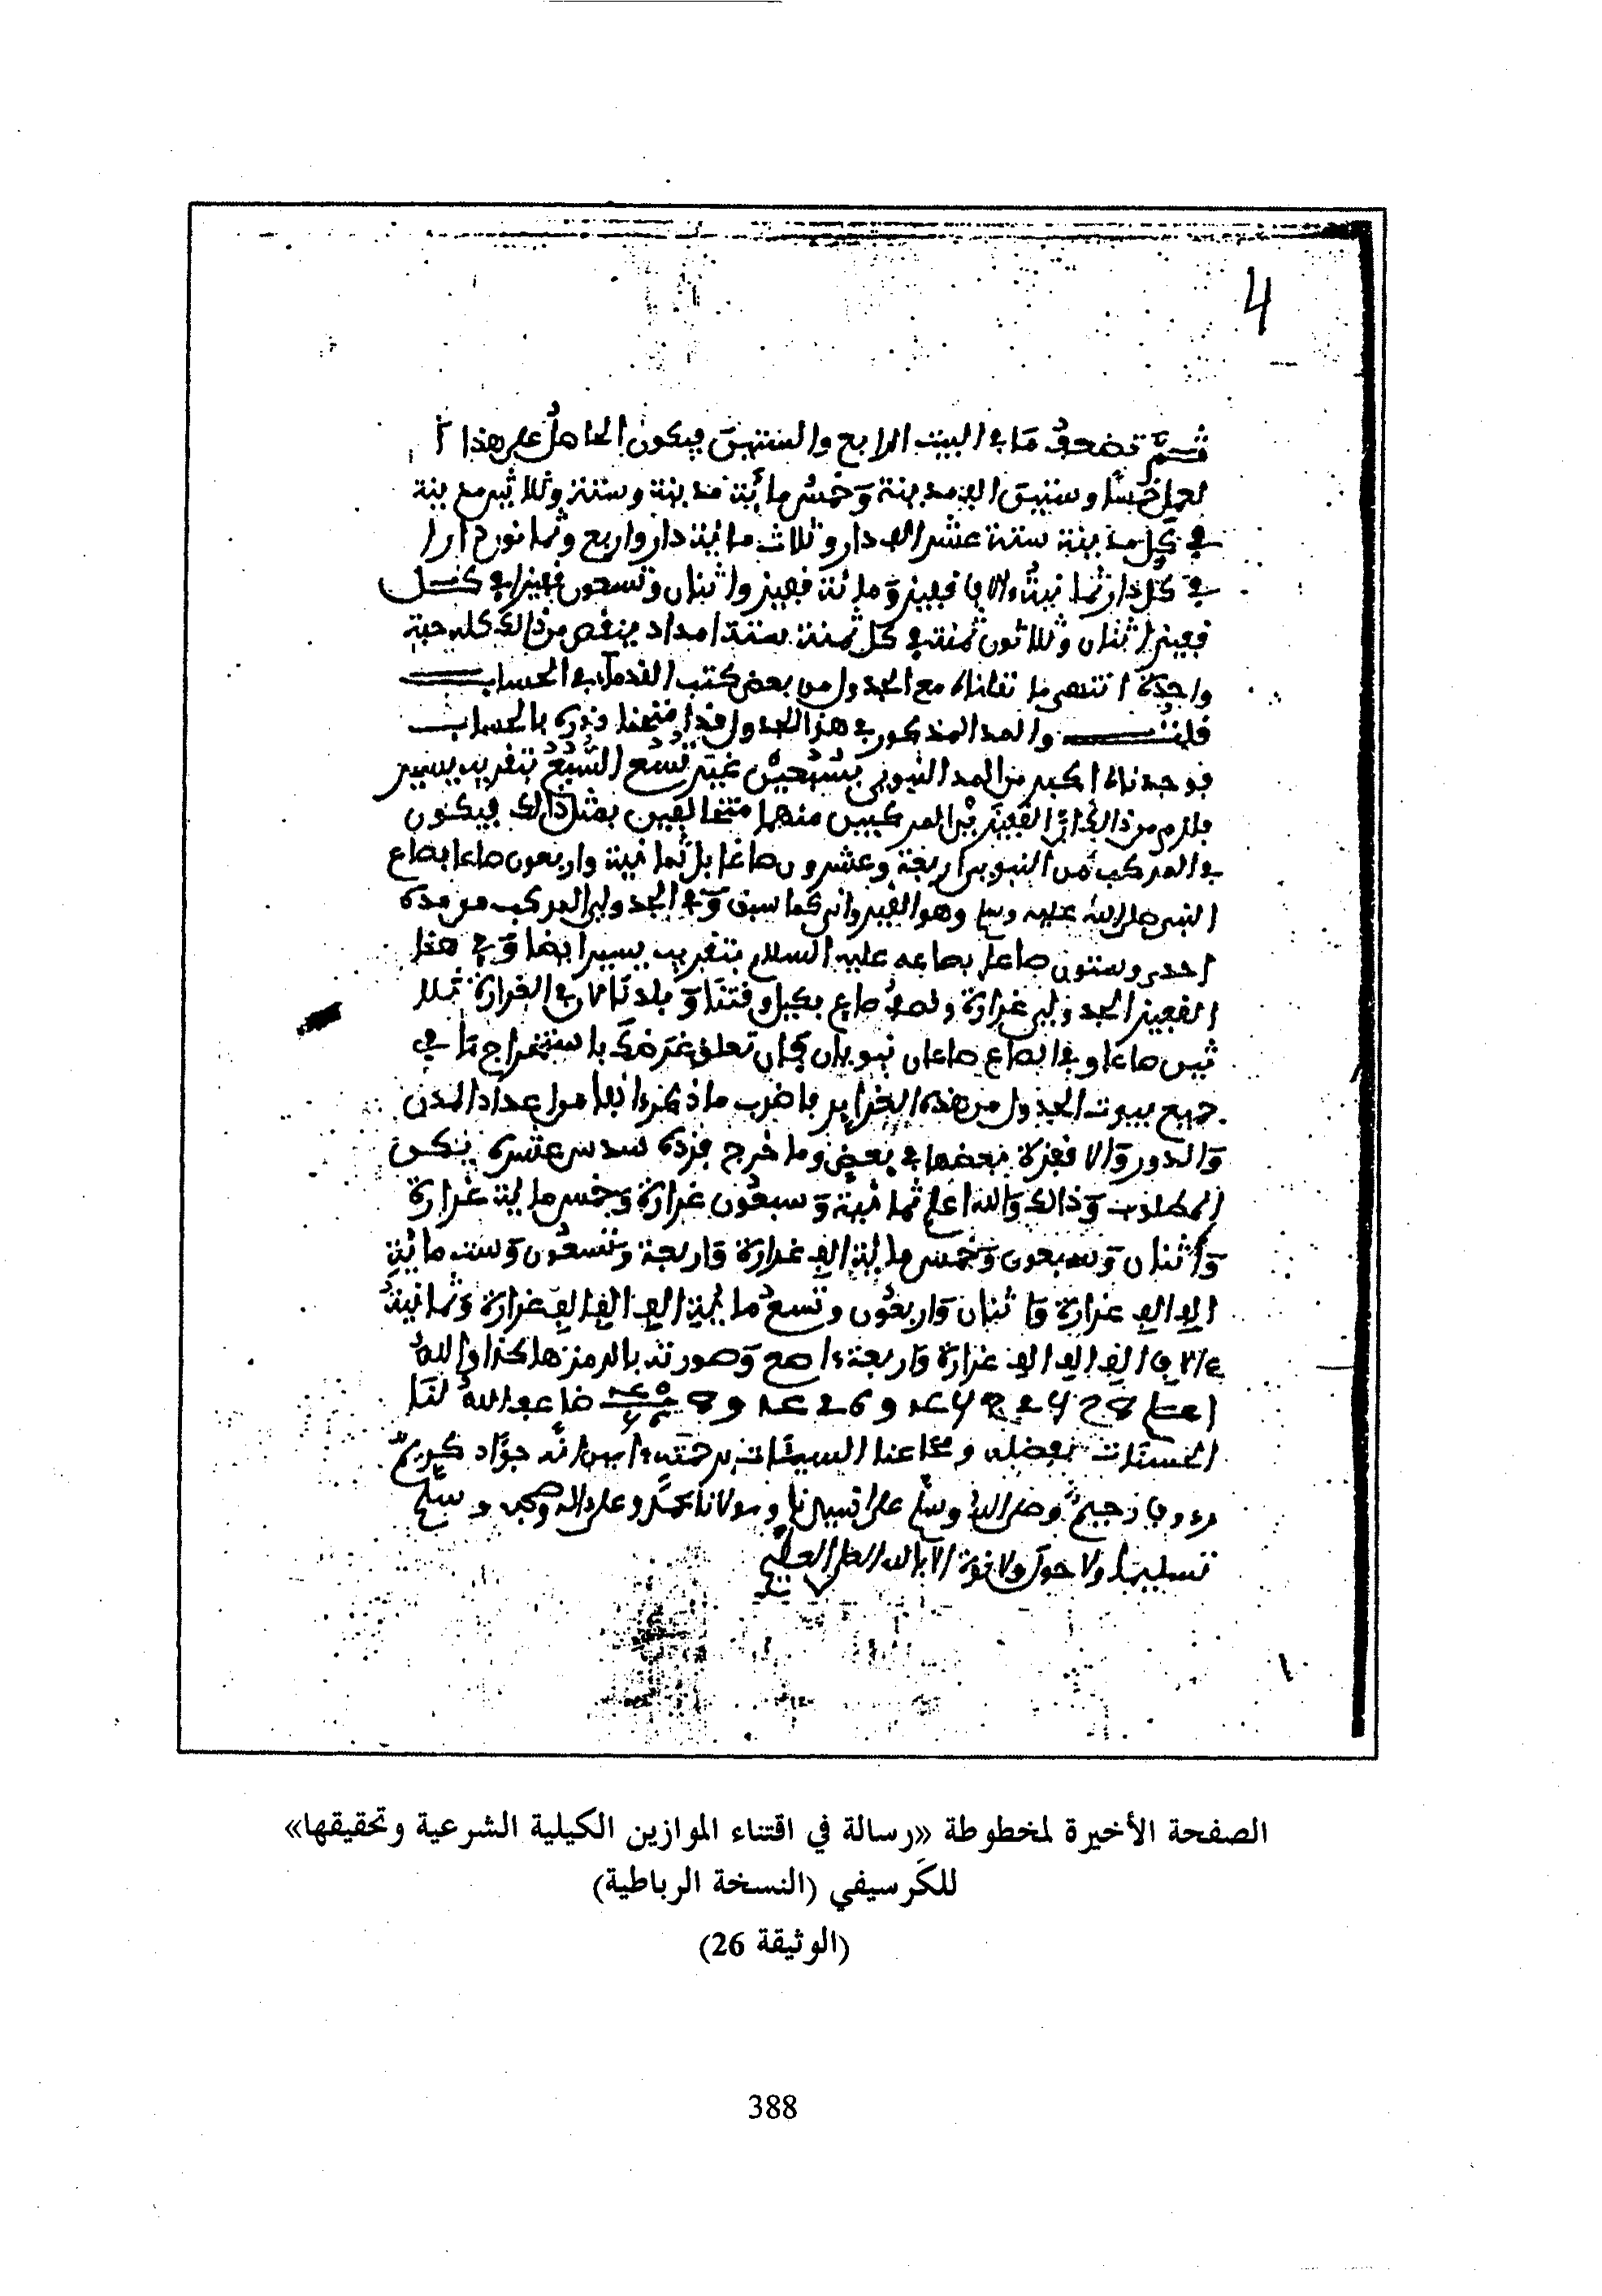 4
ثم تضعف ما في البيت الرابع والستين فيكون الحاصل على هذا ا
لعمل خمسا وستين الف مدينة وخمس مائة مدينة وستة وثلاثين مدينة
في كل مدينة ستة عشر الف دار وثلاث مائة دار واربع وثمانون دارا
في كل دار ثمانية ءالاف قفيز ومائة قفيز واثنان وتسعون قفيزا في كل
قفيز اثنان وثلاثون ثمنة في كل ثمنة ستة امداد ينقص من ذالك كله حبة
واحدة انتهى ما نقلناه مع الجدول من بعض كتب القدماء في الحساب
قلت والمد المذكور في هذا الجدول قد امتحنا قدره بالحساب
فوجدناه اكبر من المد النبوي بتسعين غير تسع السبع بتقريب يسير
فلزم من ذالك ان القفيزين المركبين منهما متخالفين بمثل ذالك فيكون
في المركب من النبوي اربعة وعشرون صاعا بل ثمانية واربعون صاعا بصاع
النبي صلى الله عليه وسلم وهو القيرواني كما سبق وفي الجدولي المركب من مده
احدى وستون صاعا بصاعه عليه السلام بتقريب يسير ايضا وفي هذا
القفيز الجدولي غرارة ونصف صاع بكيل وقتنا وبلدنا لان في الغرارة ثلا
ثين صاعا وفي الصاع صاعان نبويان فان تعلق غرضك باستخراج ما في
جميع بيوت الجدول من هذه الغراير فاضرب ما ذكره انفا من اعداد المدن
والدور والاقفزة بعضها في بعض وما خرج فزده سدس عشره يكن
المطلوب وذالك والله اعلم ثمانية وسبعون غرارة وخمس مائة غرارة
واثنان وسبعون وخمس مائة الف غرارة واربعة وتسعون وست مائة
الف الف غرارة واثنان واربعون وتسع مائة الف الف الف غرارة وثمانية
ءالاف الف الف الف غرارة واربعة ءاصع وصورته بالرمز هاكذا والله
ضاعف الله لنا
الحسنات بفضله ومحا عنا السيئات برحمته ءامين انه جواد كريم
رءوف رحيم وصلى الله وسلم على نبينا ومولانا محمد وعلى ءاله وصحبه وسلم
تسليما ولا حول ولا قوة الا بالله العلي العظيم
الصفحة الأخيرة لمخطوطة «رسالة في اقتناء الموازين الكيلية الشرعية وتحقيقها»
للكَرسيفي (النسخة الرباطية)
(الوثيقة 26)
388